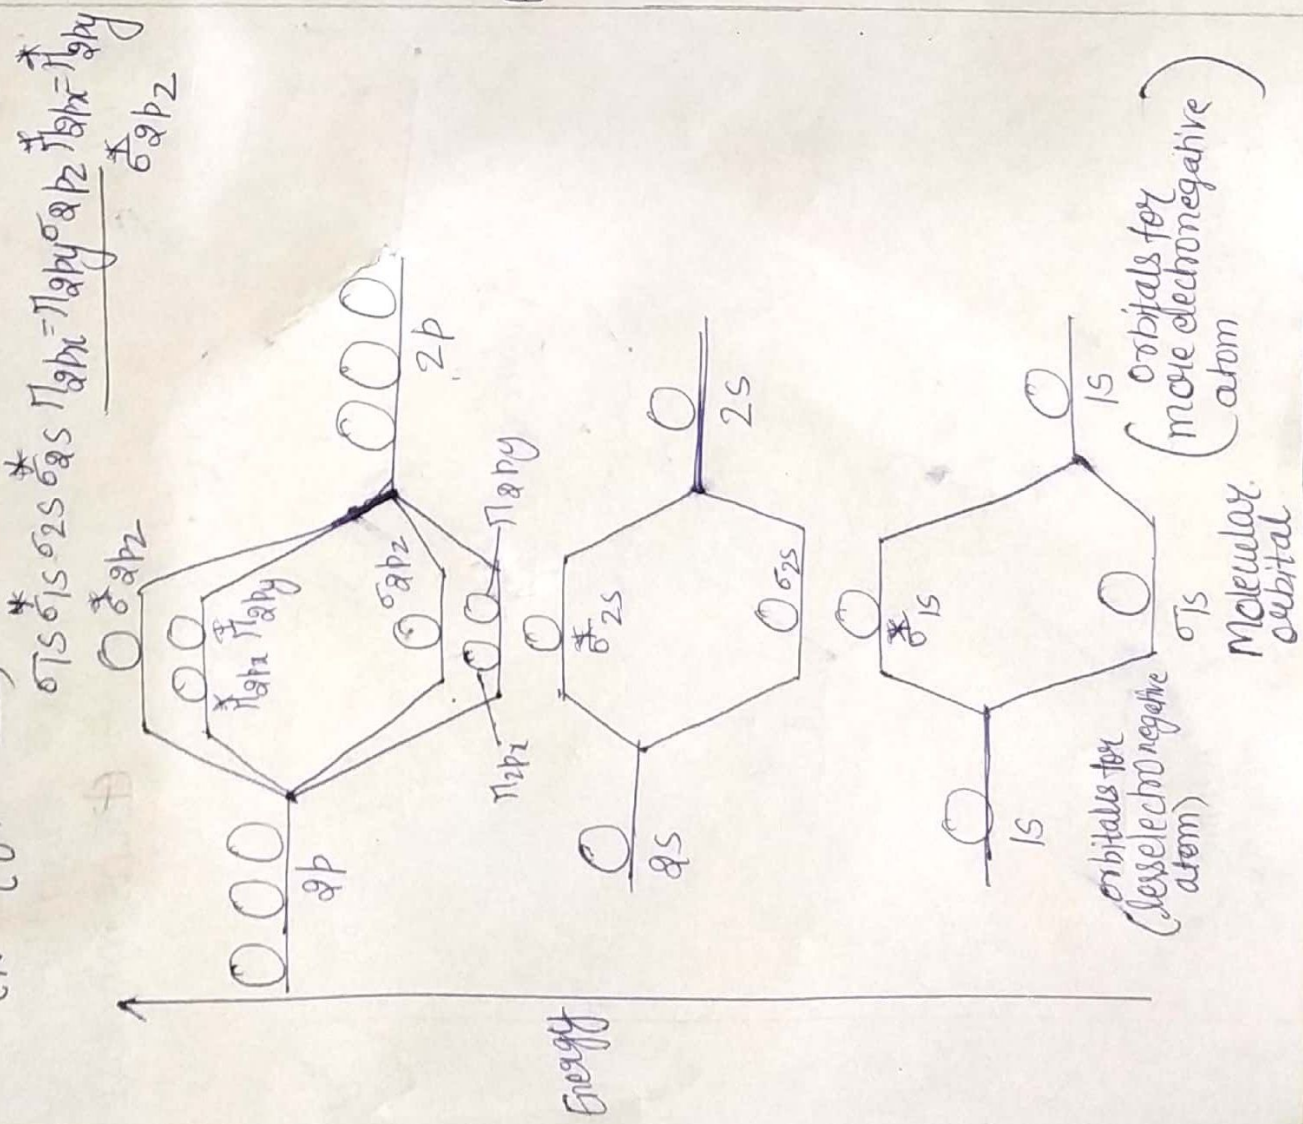 σ1s σ*1s σ2s σ*2s π2px=π2py σ2pz π*2px=π*2py
σ*2pz
σ*2pz
π*2px π*2py
2p
2p
σ2pz
π2px
π2py
Energy
σ*2s
2s
2s
σ2s
σ*1s
1s
1s
σ1s
(orbitals for
lesselectronegative
atom)
Molecular
orbital
(orbitals for
more electronegative
atom)